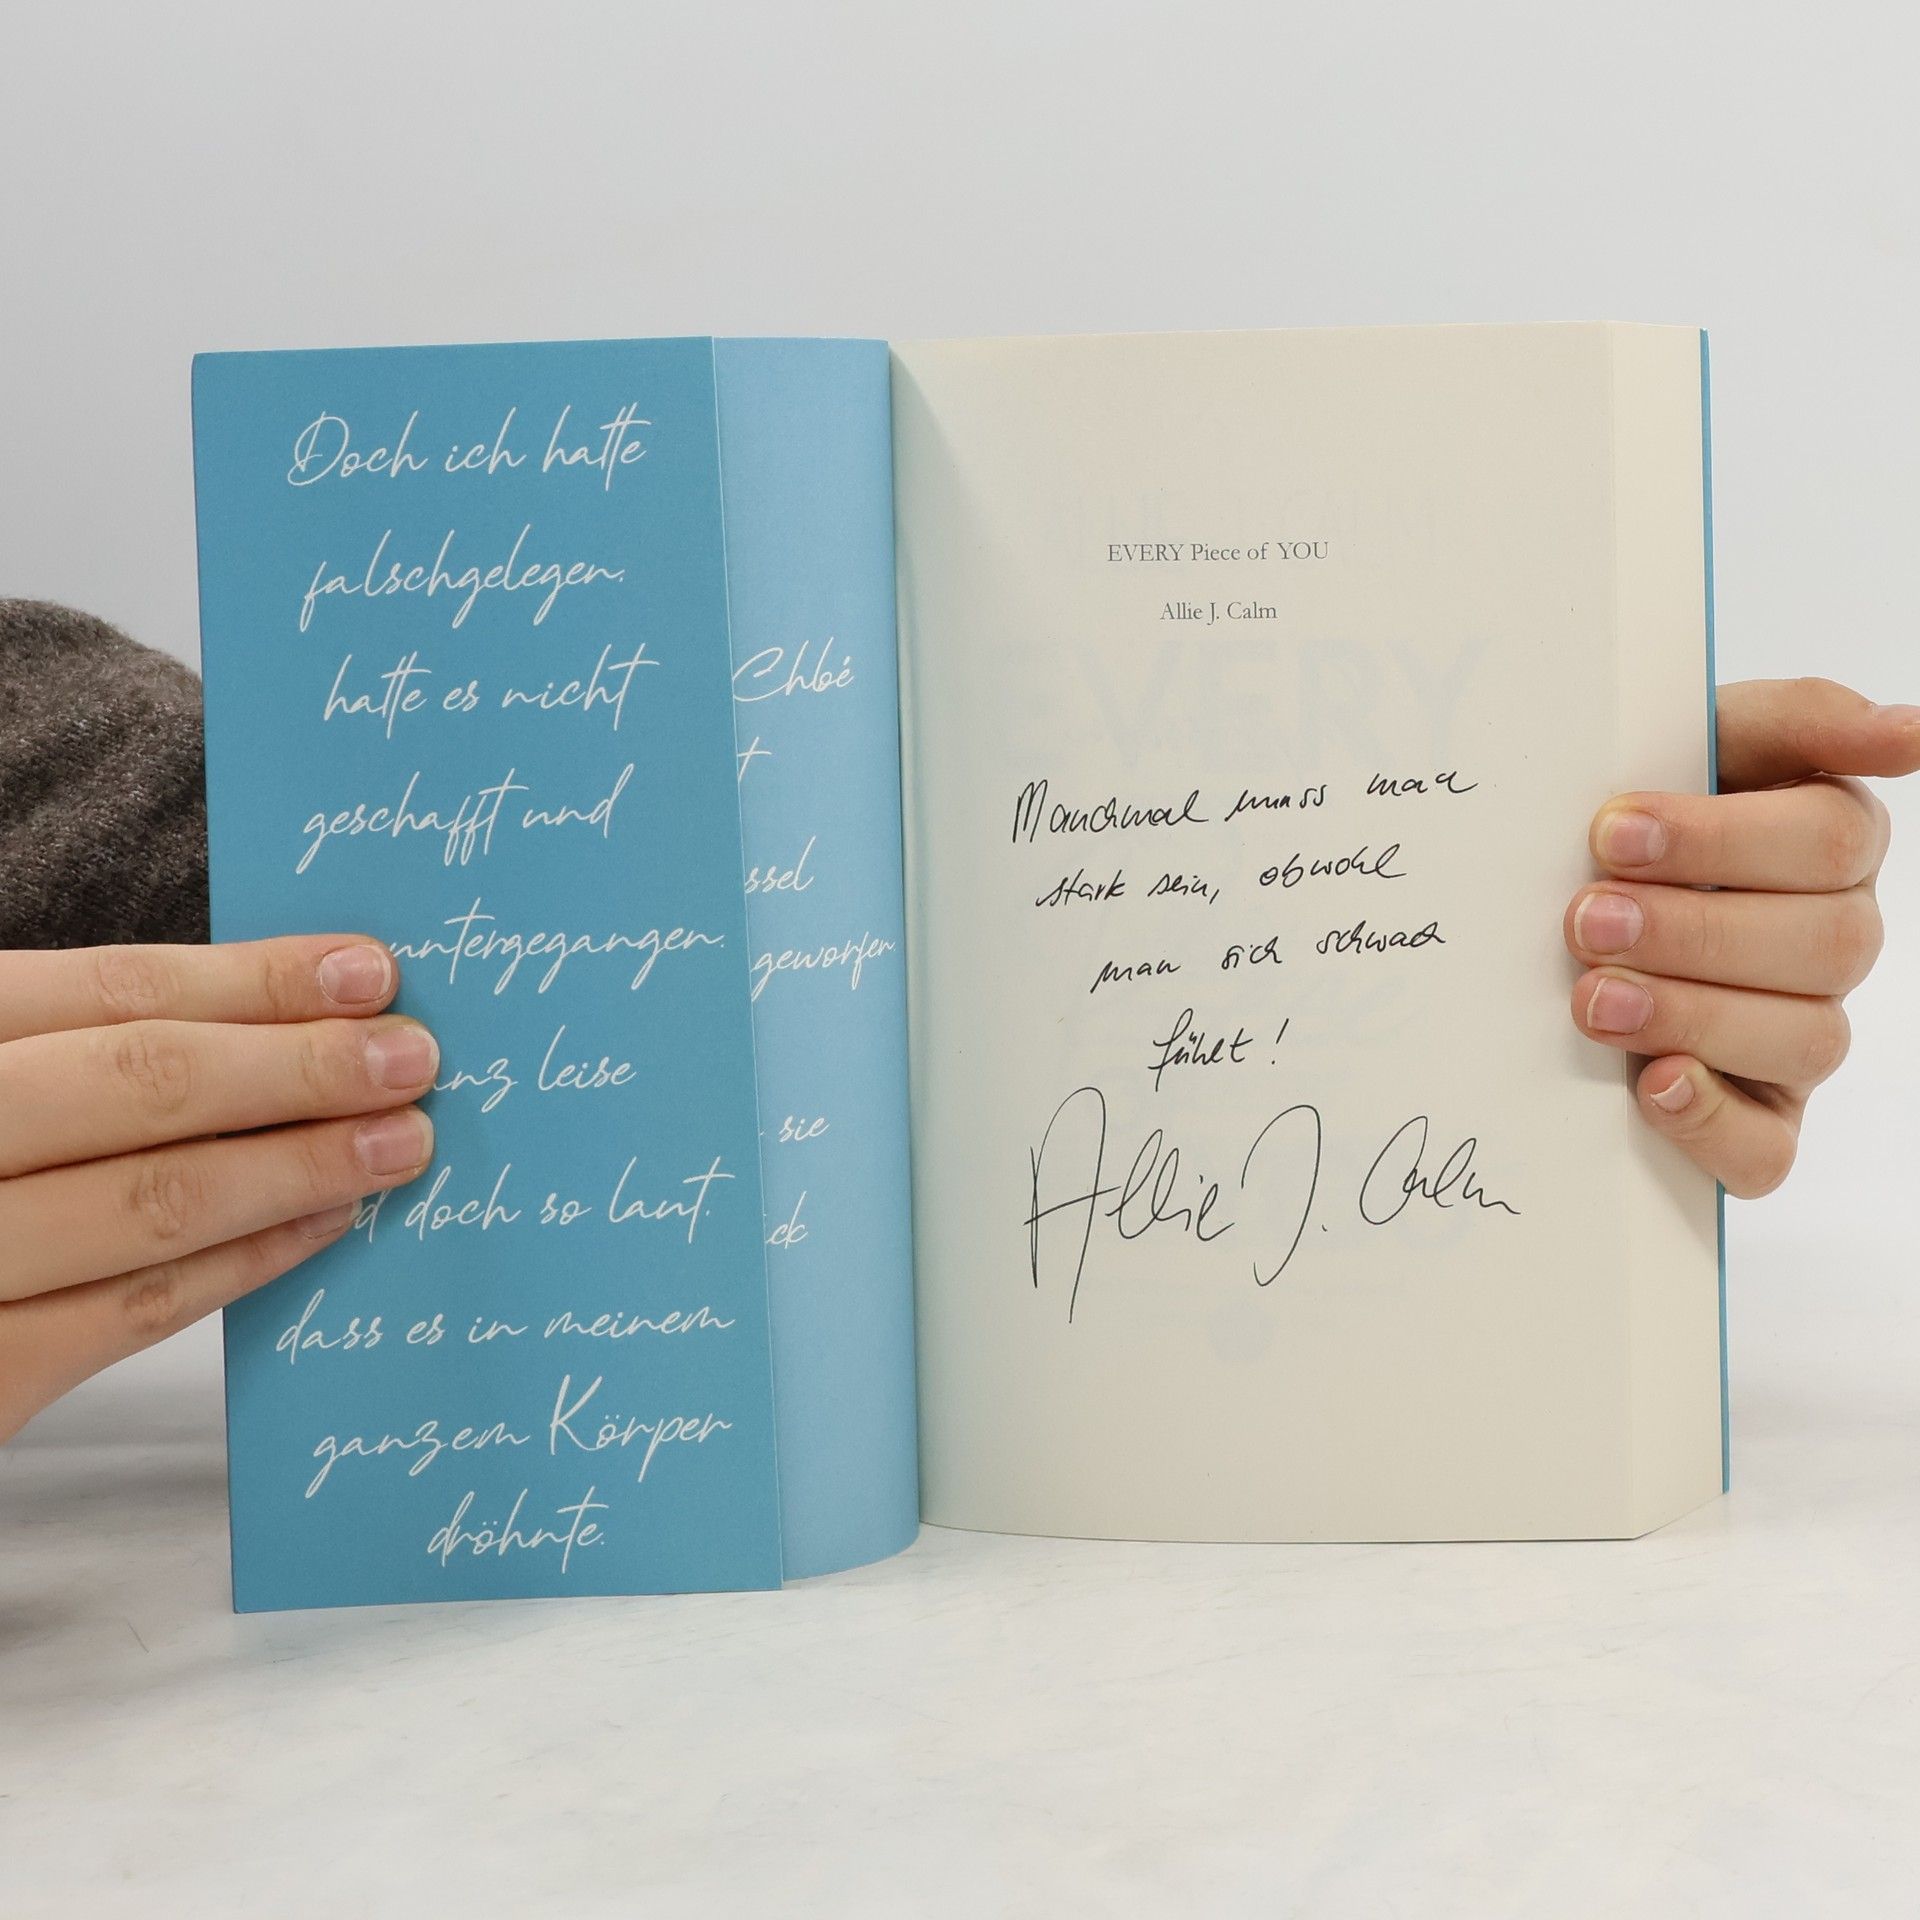 Doch ich hatte
falschgelegen.
hatte es nicht
geschafft und
untergegangen.
leise
doch so laut.
dass es in meinem
ganzem Körper
dröhnte.
Chloé
geworfen
sie
EVERY Piece of YOU
Allie J. Calm
Manchmal muss man
stark sein, obwohl
man sich schwach
fühlt!
Allie J. Calm